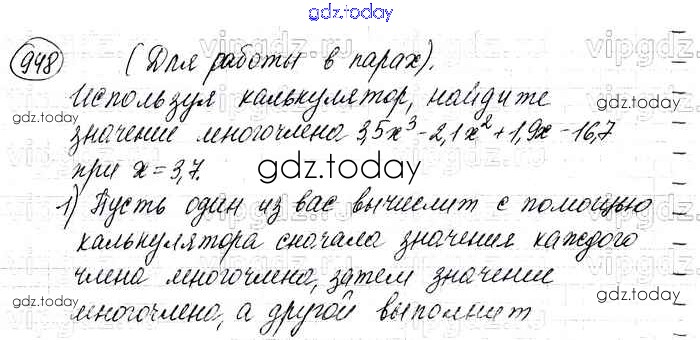 gdz.today
948 (Для работы в парах).
Используя калькулятор, найдите
значение многочлена 3,5x³-2,1x²+1,9x-16,7
при x=3,7.
gdz.today
1) Пусть один из вас вычислит с помощью
калькулятора сначала значения каждого
члена многочлена, затем значение
многочлена, а другой выполнит
gdz.today
gdz.today